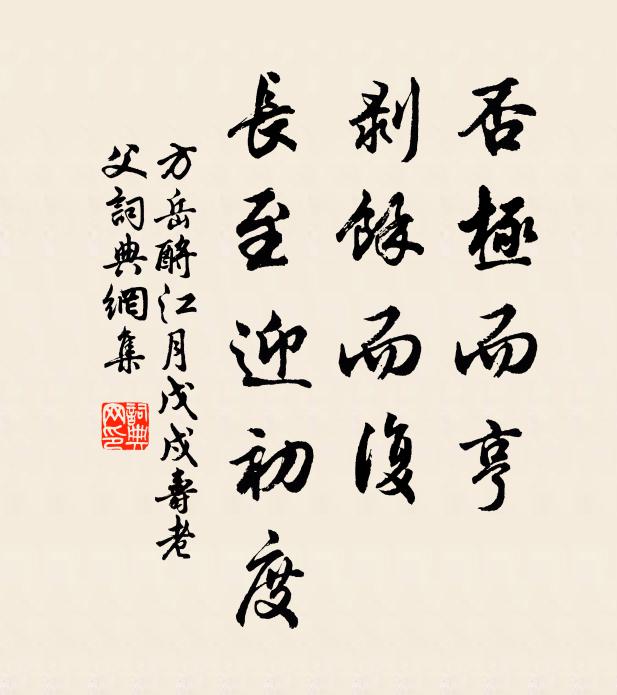 否極而亨
剝餘而復
長至迎初度
方岳酹江月戊戌壽老
父詞典網集
詞典
网印